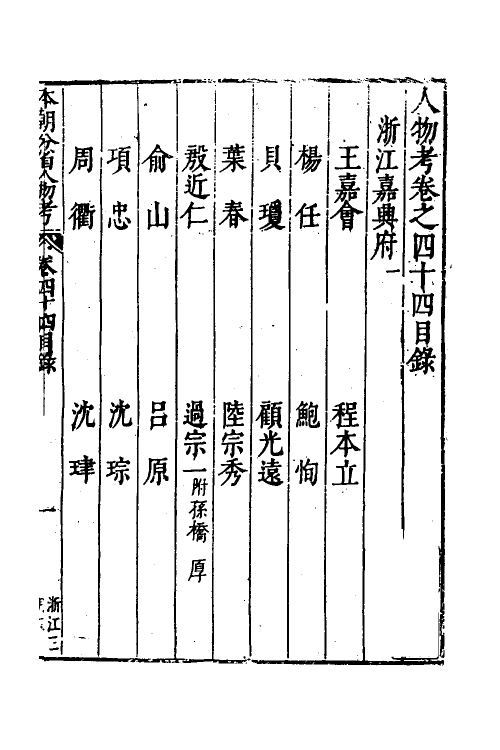 人物考卷之四十四目錄
浙江嘉興府一
王嘉會　程本立
楊任　鮑恂
貝瓊　顧光遠
葉春　陸宗秀
殷近仁　過宗一附孫橋 厚
俞山　呂原
項忠　沈琮
周衢　沈肄
本朝分省人物考　卷四十四目錄　一　浙江三